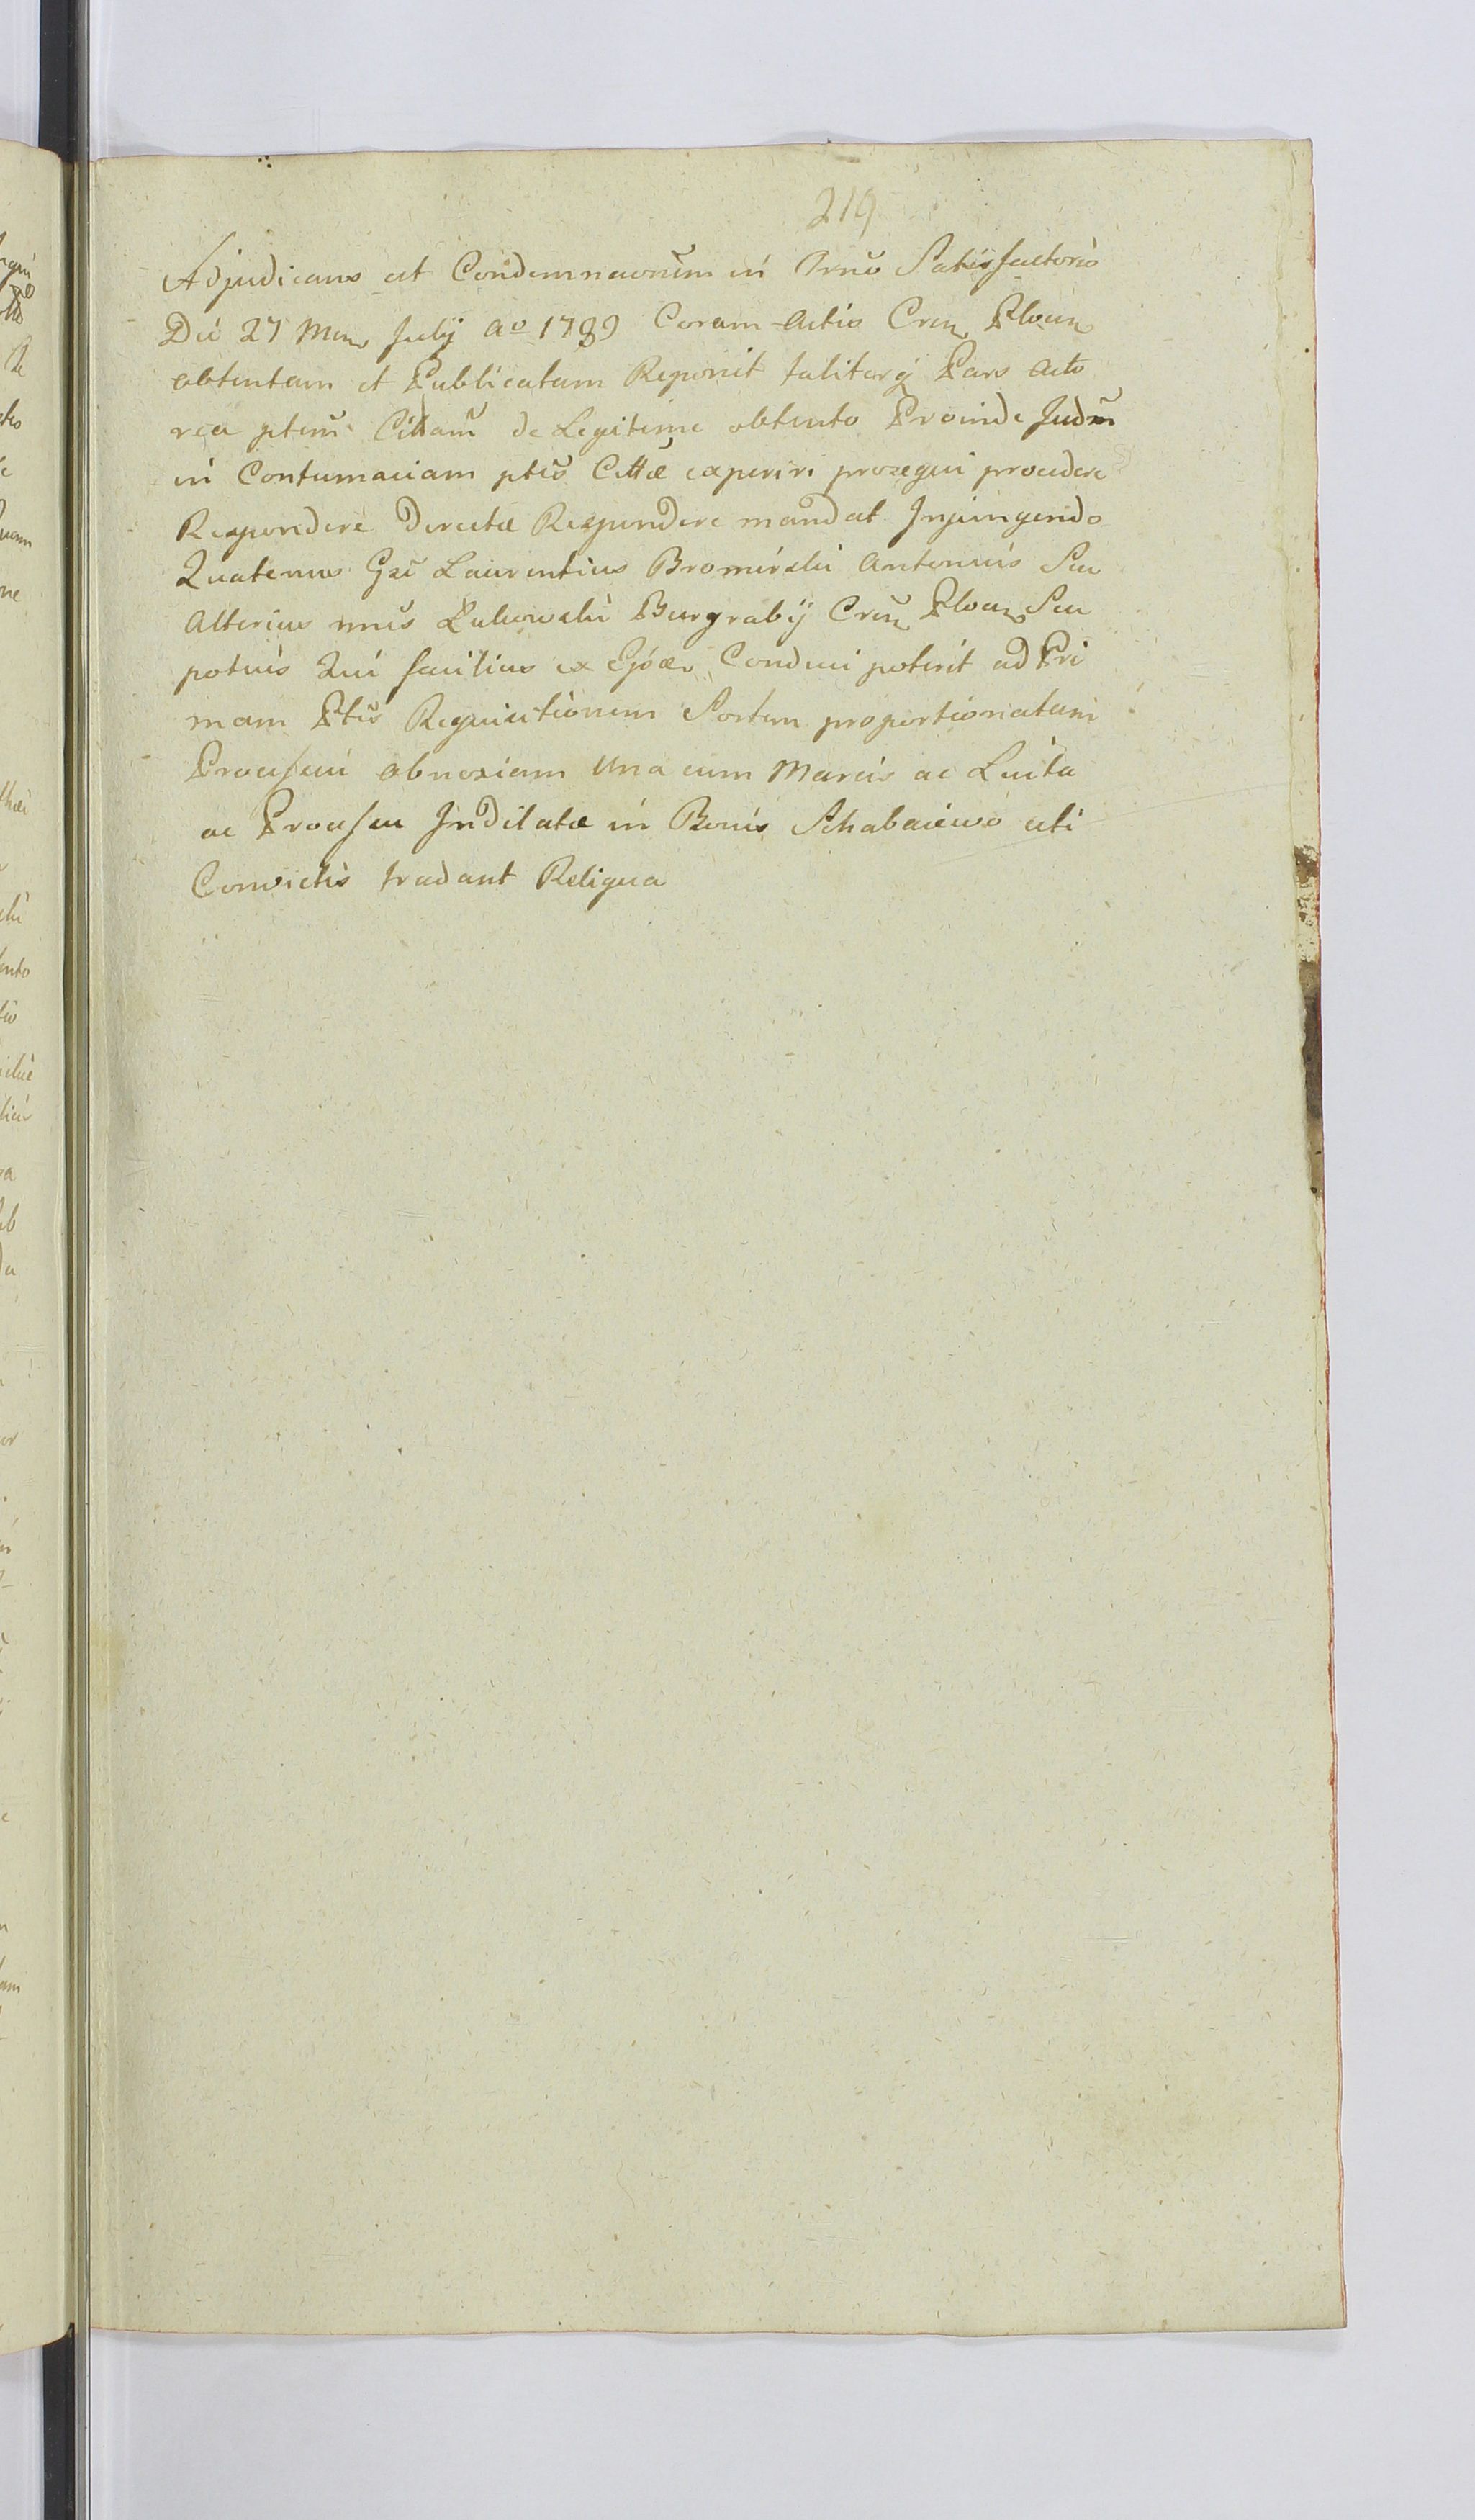 219
Adjudicans et Condemnaõnem in Trnõ Satisfactorio
Die 27 Mens July Aº 1789 Coram Actis Cren Plocen
obtentam et Publicatam Reponit talitery Pars Acto
rea ptem Cittam de Legitime obtento Proinde Judm
in Contumaciam ptis Cittæ experiri prosequi procedere
Respondere Directæ Respondere mandat Injungendo
Quatenus Gsi Laurentius Bromirski Antonius Seu
Alterius nnis Łukowski Burgrabij Cren Plocen Seu
potius Qui facilius ex Conduci poterit ad Pri
mam Ptis Requisitionem Sortem proportionatam
Processui obnoxiam Una cum Marcis ac Luita
ac Processu Indilatæ in Bonis Schabaiewo uti
Convictis tradant Reliqua